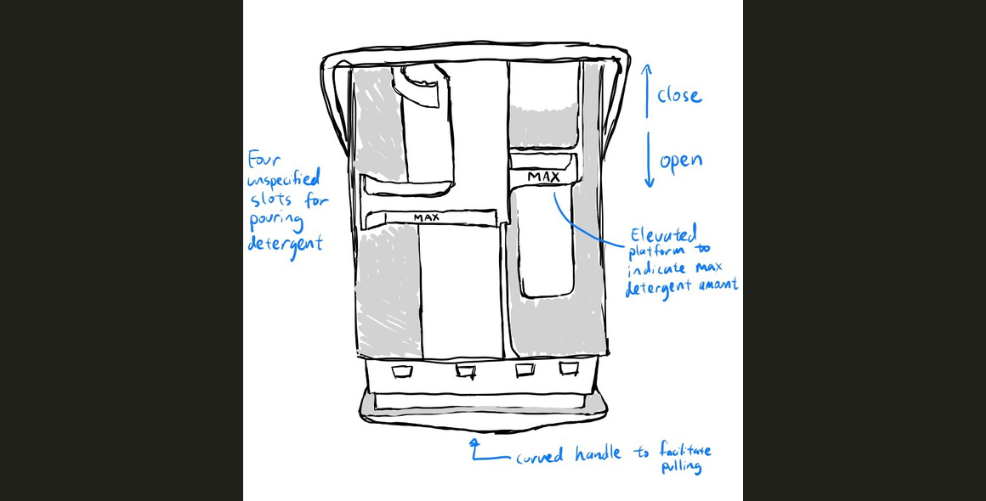 close
open
Four
unspecified
slots for
pouring
detergent
MAX
MAX
Elevated
platform to
indicate max
detergent amant
curved handle to facilitate
pulling